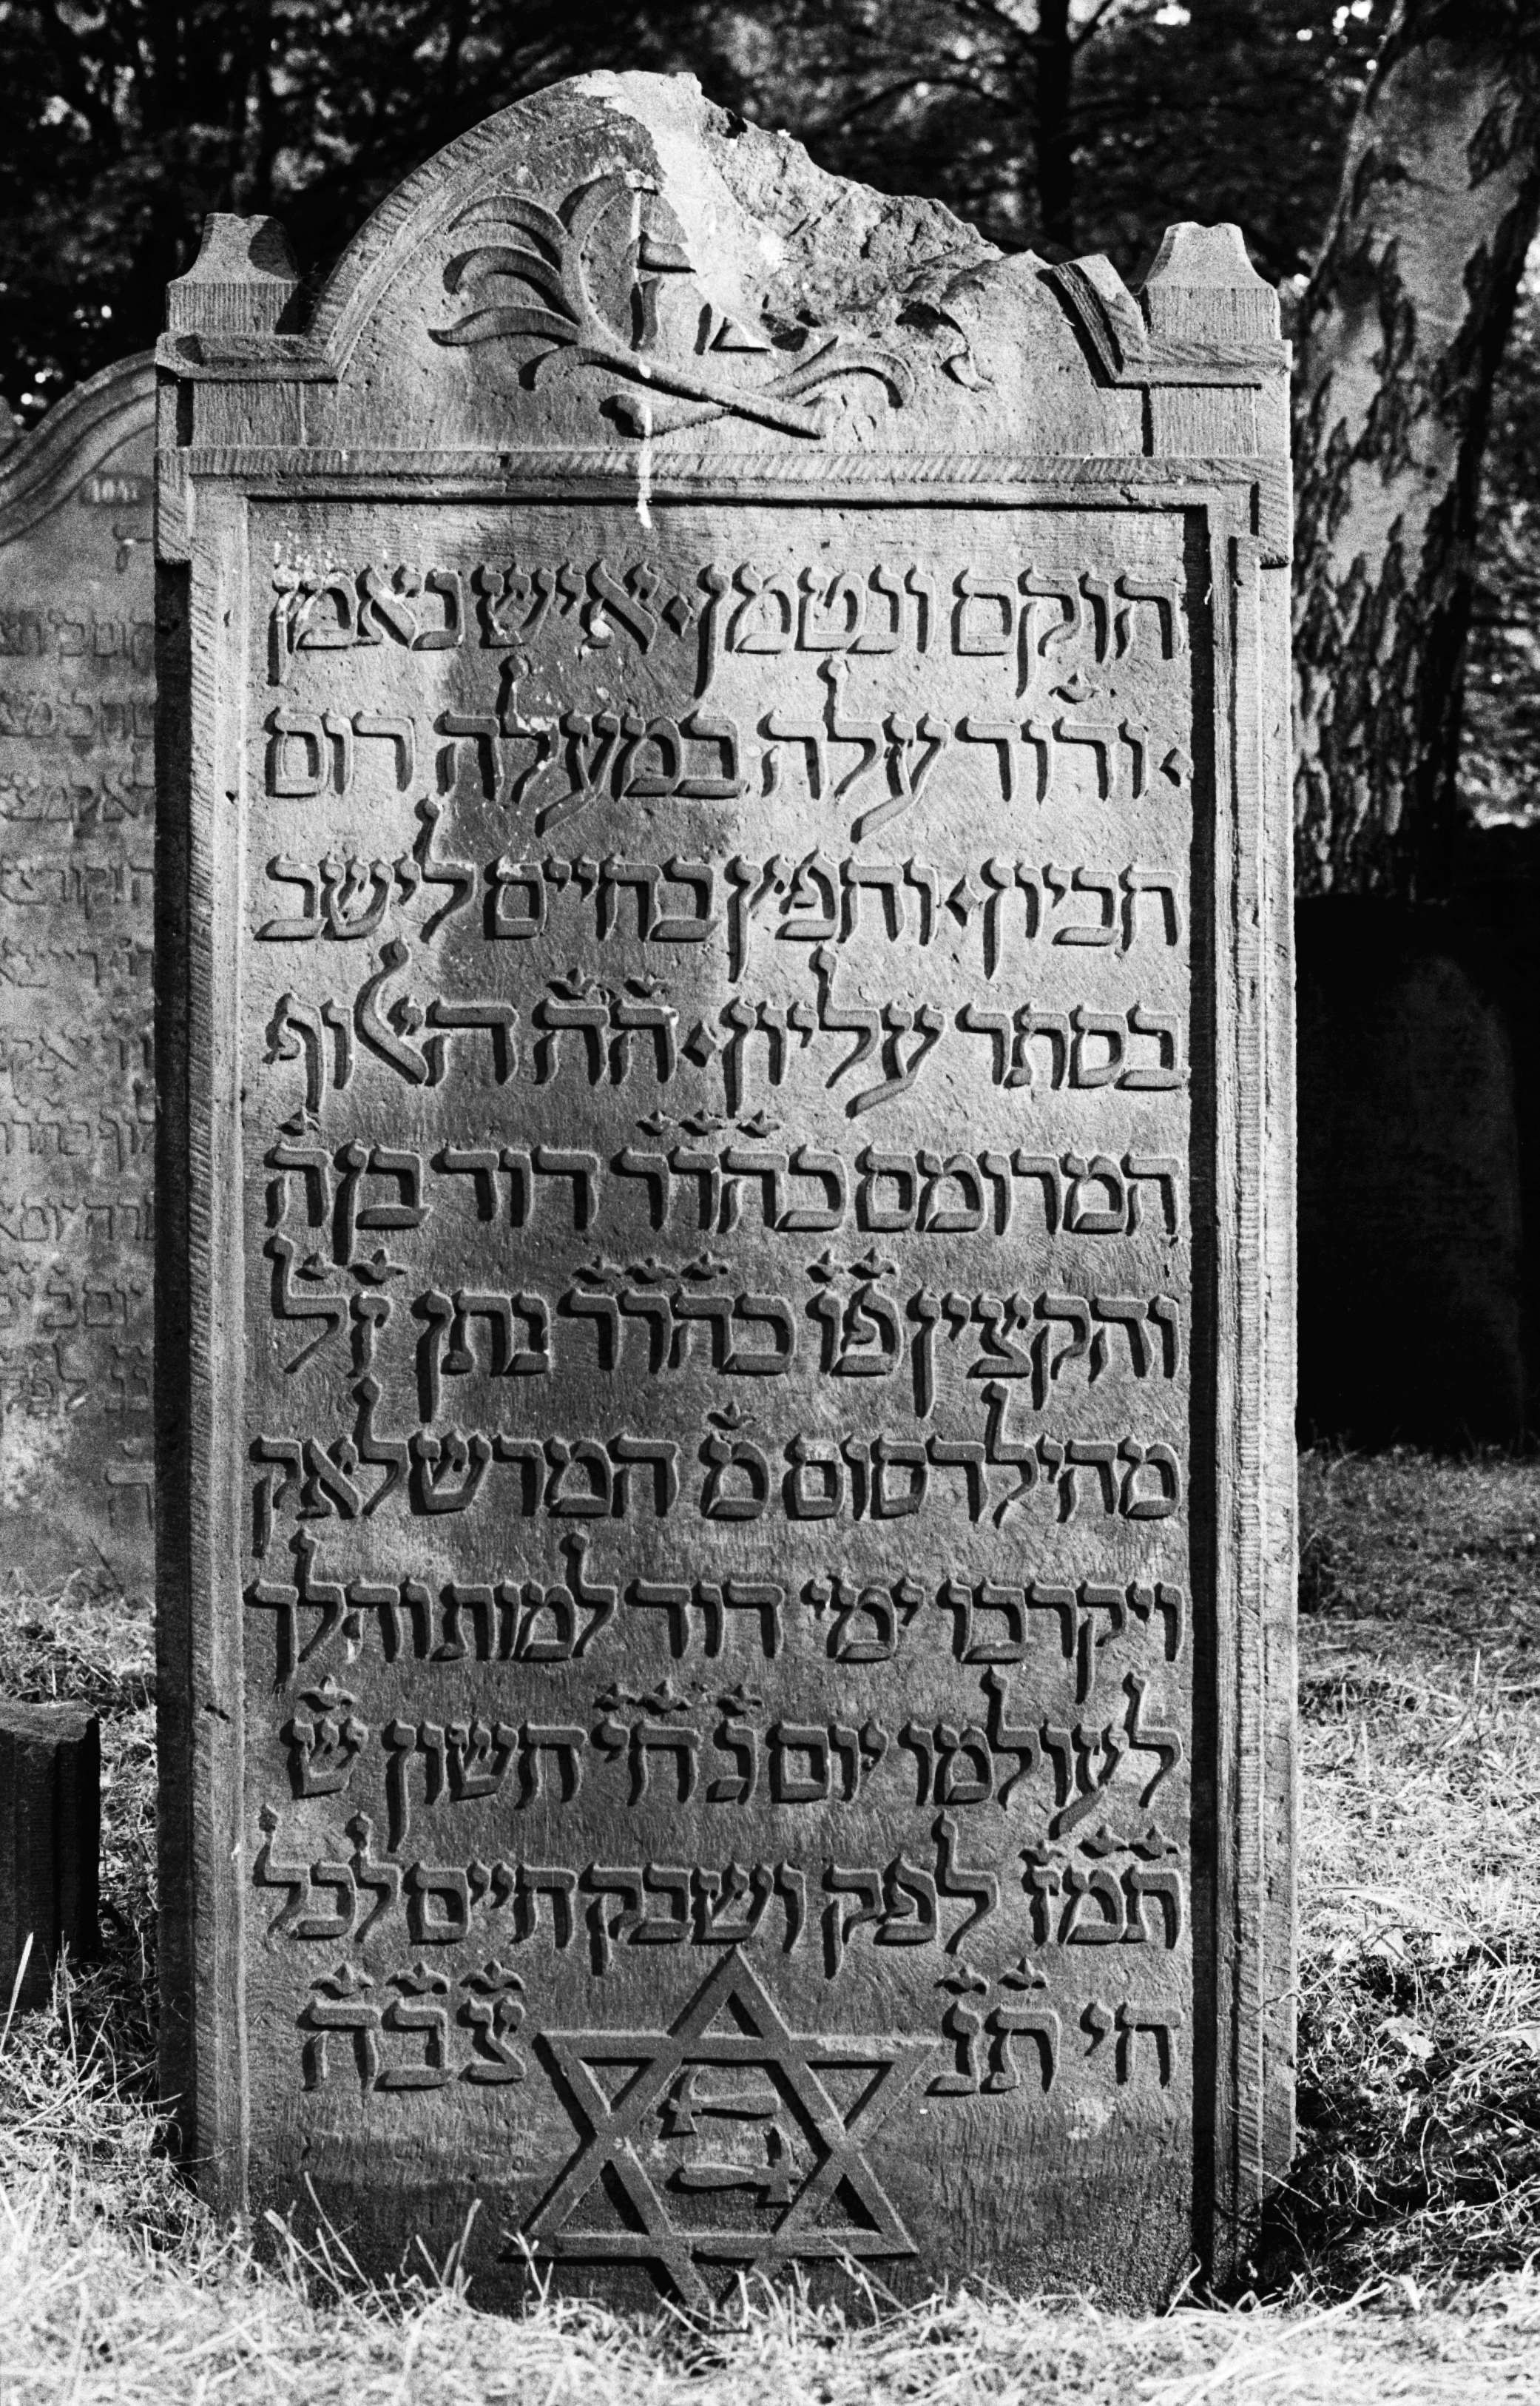 פ נ
הוקם ונטמן · איש נאמן
· ודוד עלה במעלה רום
חביון · וחפץ בחיים לישב
בסתר עליון · ה״ה האלוף
המרומם כהר״ר דוד בן ה׳
והקצין פ״ו כהר״ר נתן ז״ל
מהילדסום מ׳ המרשלאק
ויקרבו ימי דוד למות והלך
לעולמו יום ג׳ ח״י חשון ש׳
תמ״ז לפק ושבק חיים לכל
חי ת״נ צ״ב״ה